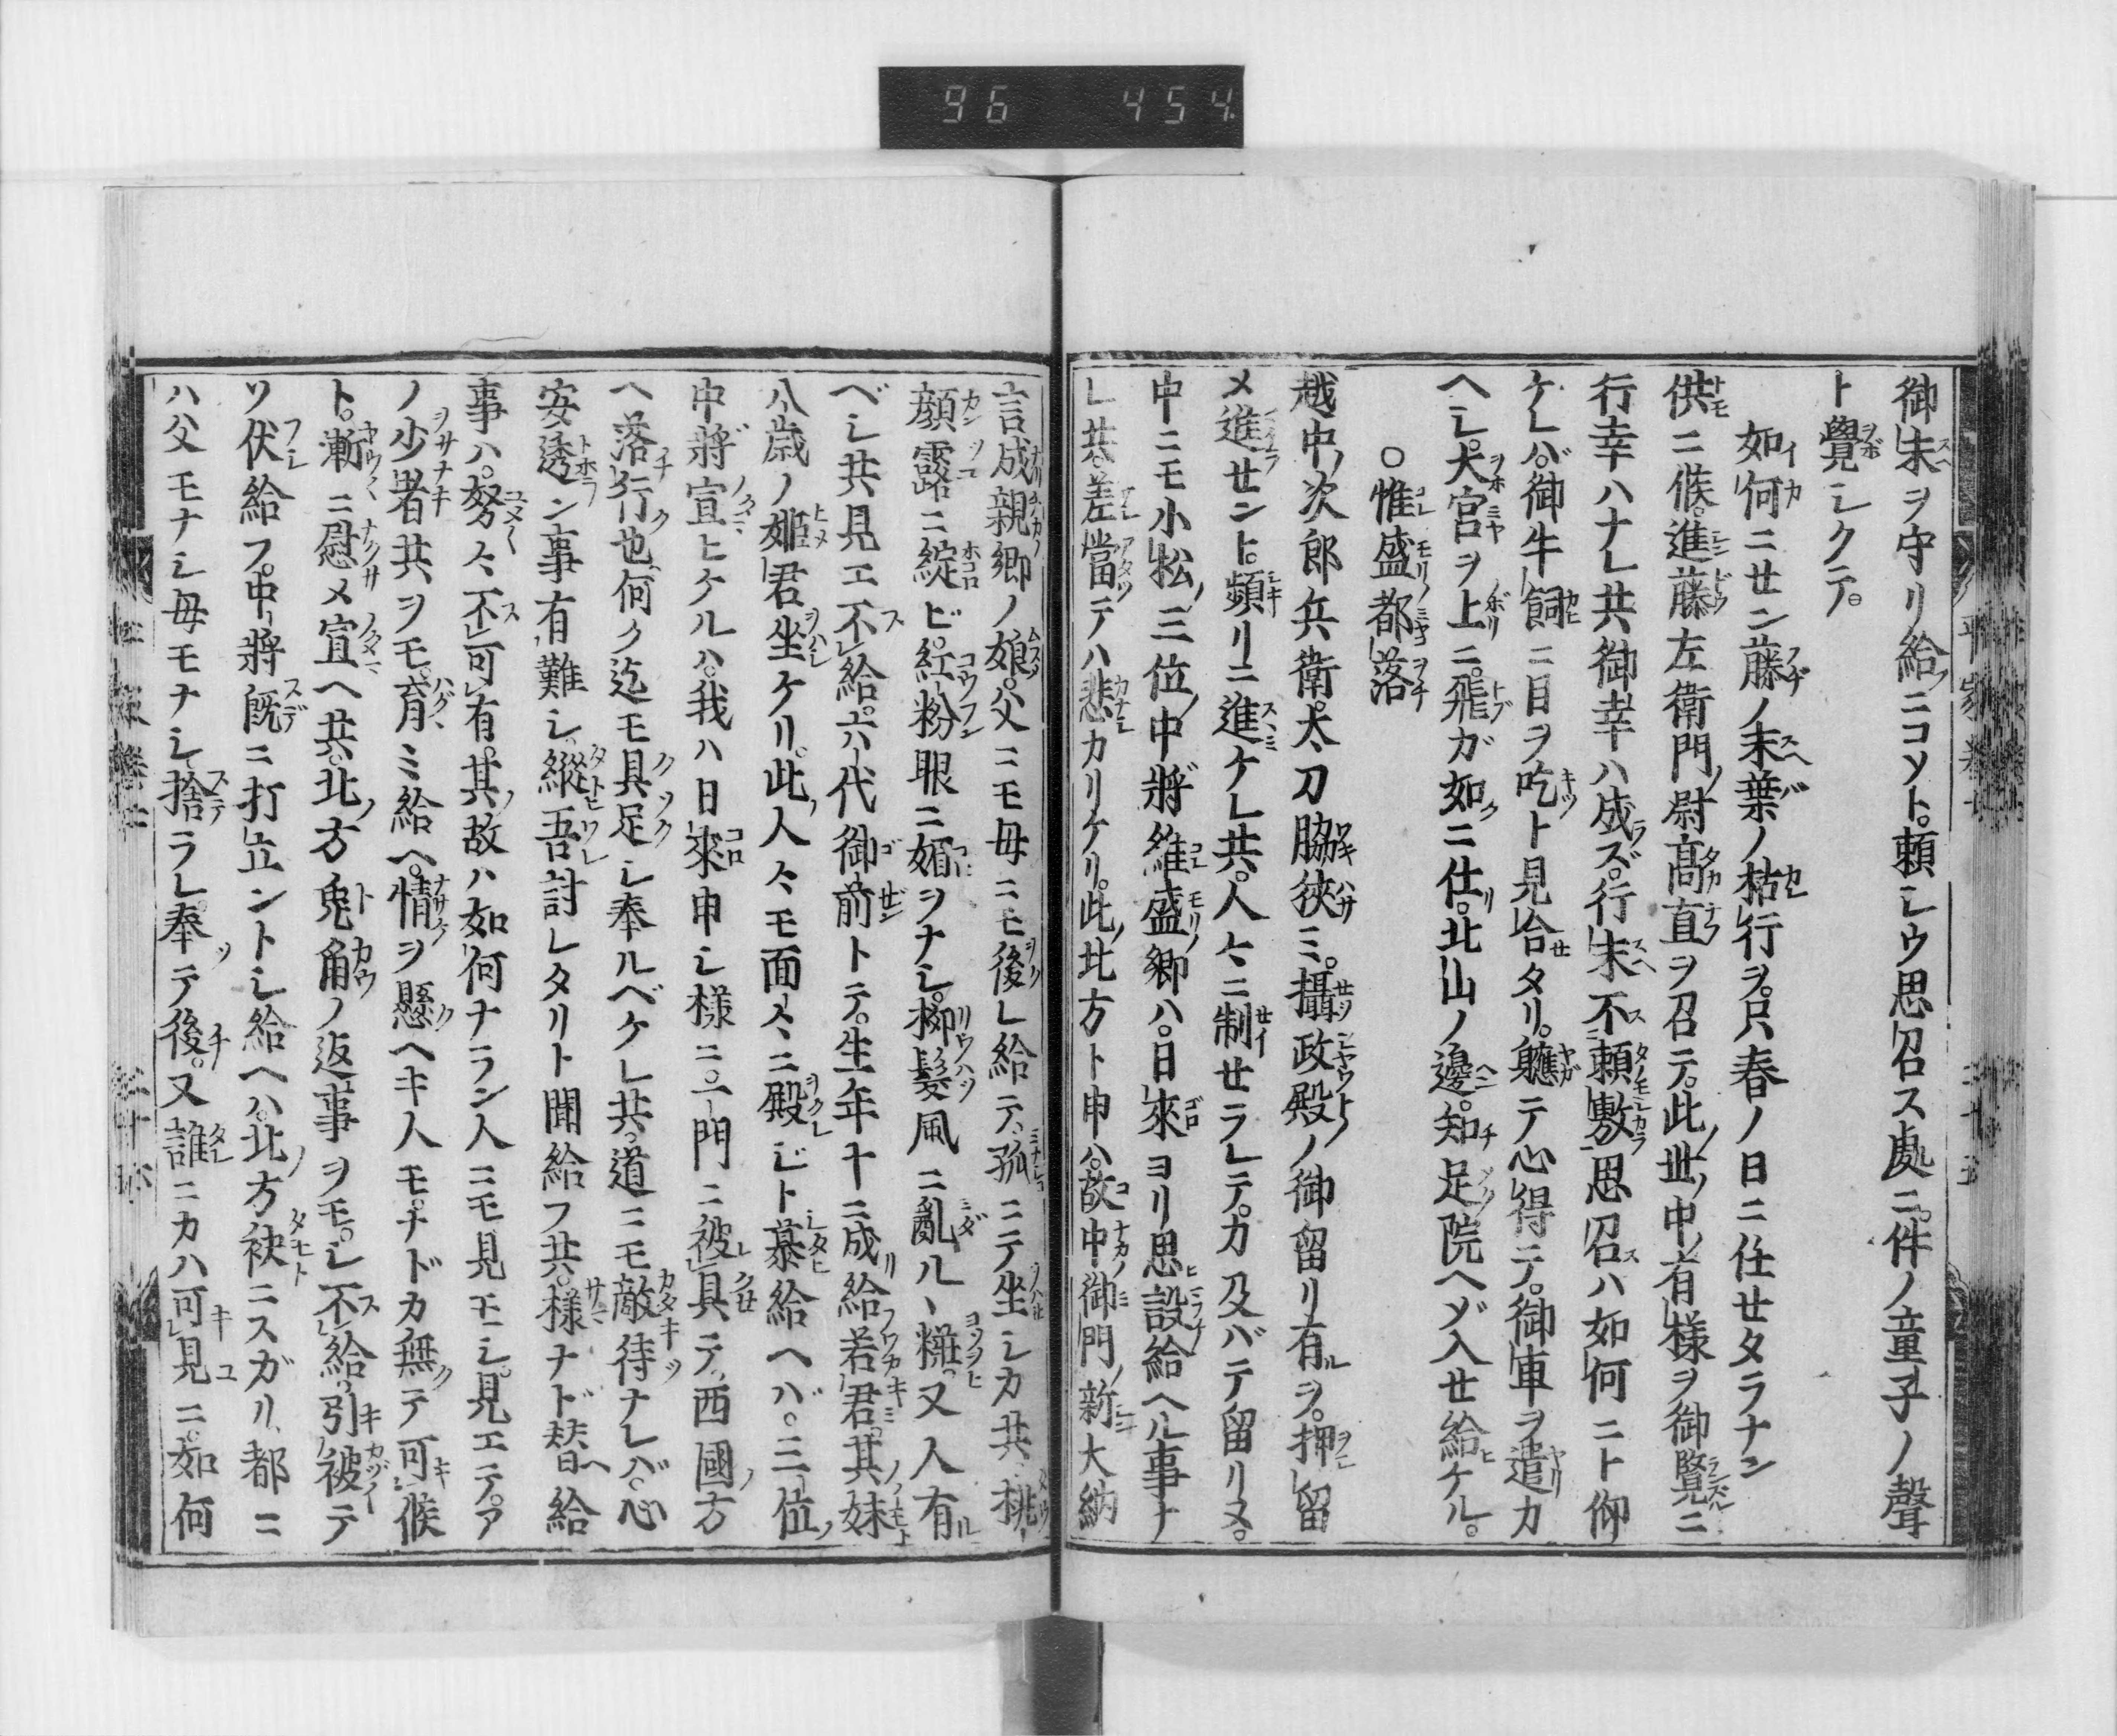 96 454
御末ヲ守リ給ニコソト。頼シウ思召ス處ニ。件ノ童子ノ聲
ト覺シクテ。
如何ニセン藤ノ末葉ノ枯行ヲ。只春ノ日ニ仕セタラナン
供ニ候。進藤左衛門ノ尉髙直ヲ召テ。此世中有様ヲ御覽ニ
行幸ハナレ共御幸ハ成ズ。行末不頼敷思召ハ如何ニト仰
ケレバ。御牛飼ニ目ヲ吃ト見合タリ。軈テ心得テ。御車ヲ遣カ
ヘシ。大宮ヲ上ニ。飛ガ如ニ仕。北山ノ邊。知足院ヘゾ入セ給ケル。
○惟盛都落
越中次郎兵衛。大刀脇挾ミ。攝政殿ノ御留リ有ヲ。押留
メ進セント。頻リニ進ケレ共。人々ニ制セラレテ。力及バテ留リヌ。
中ニモ小松三位中將維盛卿ハ。日來ヨリ思設給ヘル事ナ
レ共。差當テハ悲カリケリ。此北方ト申ハ。故中御門新大納
言成親卿ノ娘。父ニモ母ニモ後レ給テ。孤ニテ坐シカ共。桃
顔露ニ綻ビ。紅粉眼ニ媚ヲナシ。柳髮風ニ亂ルヽ糚。又人有
ベシ共見エ不給。六代御前トテ。生年十ニ成給若君。其妹
八歳ノ姬君坐ケリ。此人々モ面々ニ殿ジト慕給ヘバ。三位
中將宣ヒケルハ。我ハ日來申シ様ニ。一門ニ被具テ。西國方
ヘ落行也。何ク迄モ具足シ奉ルベケレ共。道ニモ敵待ナレバ。心
安透ン事有難シ。縱吾討レタリト聞給フ共。様ナド替給
事ハ。努々不可有。其故ハ如何ナラン人ニモ見モシ。見エテ。ア
ノ少者共ヲモ。育ミ給ヘ。情ヲ懸ヘキ人モ。ナドカ無テ可候
ト。漸ニ慰メ宣ヘ共。北方兎角ノ返事ヲモ。シ不給。引被テ
ソ伏給フ。中將既ニ打立ントシ給ヘハ。北方袂ニスガリ。都ニ
ハ父モナシ母モナシ。捨ラレ奉テ後。又誰ニカハ可見ニ。如何